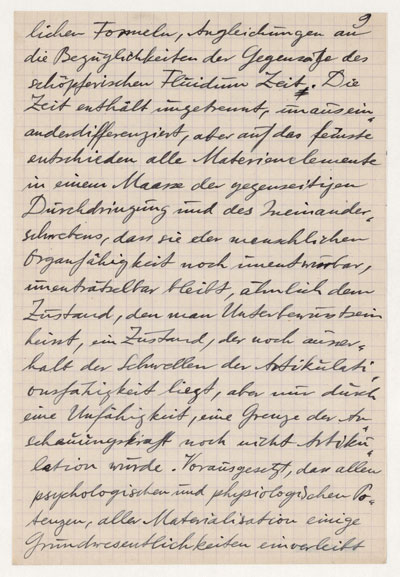 9
lichen Formeln, Angleichungen an
die Bezüglichkeiten der Gegensätze des
schöpferischen Fluidum Zeit. Die
Zeit enthält ungetrennt, unausein-
anderdifferenziert, aber auf das feinste
entschieden alle Materienelemente
in einem Maasze der gegenseitigen
Durchdringung und des Ineinander-
schwebens, dass sie der menschlichen
Organfähigkeit noch unentwirrbar,
unenträtselbar bleibt, ähnlich dem
Zustand, den man Unterbewusstsein
heisst, ein Zustand, der noch ausser-
halb der Schwellen der Artikulati-
onsfähigkeit liegt, aber nur durch
eine Unfähigkeit, eine Grenze der An-
schauungskraft noch nicht Artiku-
lation wurde. Vorausgesetzt, dass allen
psychologischen und physiologischen Po-
tenzen, aller Materialisation einige
Grundwesentlichkeiten einverleibt